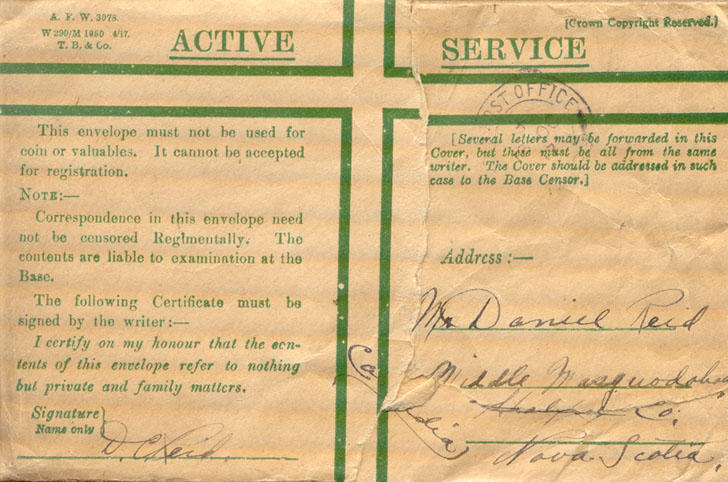 A. F. W. 3078.
W 290/M 1950 4/17.
T. B. & Co.
ACTIVE
SERVICE
[Crown Copyright Reserved.]
POST OFFICE
This envelope must not be used for
coin or valuables. It cannot be accepted
for registration.
NOTE:—
Correspondence in this envelope need
not be censored Regimentally. The
contents are liable to examination at the
Base.
The following Certificate must be
signed by the writer:—
I certify on my honour that the con-
tents of this envelope refer to nothing
but private and family matters.
Signature
Name only
D. C. Reid.
[Several letters may be forwarded in this
Cover, but these must be all from the same
writer. The Cover should be addressed in such
case to the Base Censor.]
Address :—
Mr Daniel Reid
Middle
Co.
Nova Scotia,